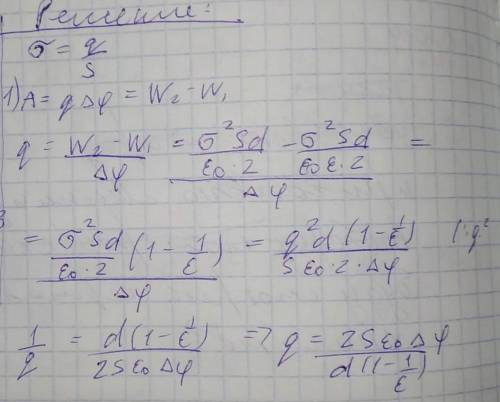 Решение:
σ = q/S
1) A = qΔφ = W₂ - W₁
q = (W₂ - W₁)/Δφ = (σ²Sd/(ε₀·2) - σ²Sd/(ε₀ε·2))/Δφ =
= (σ²Sd/(ε₀·2) (1 - 1/ε))/Δφ = q²d(1 - 1/ε)/(Sε₀·2·Δφ) |:q²
1/q = d(1 - 1/ε)/(2Sε₀Δφ) => q = 2Sε₀Δφ/(d(1 - 1/ε))